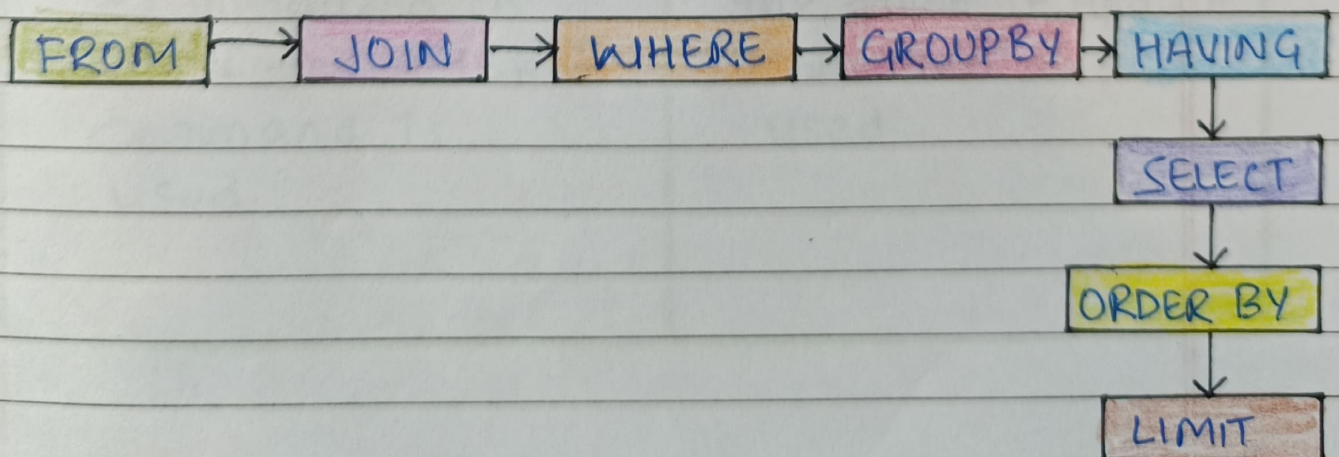 FROM JOIN WHERE GROUPBY HAVING
SELECT
ORDER BY
LIMIT